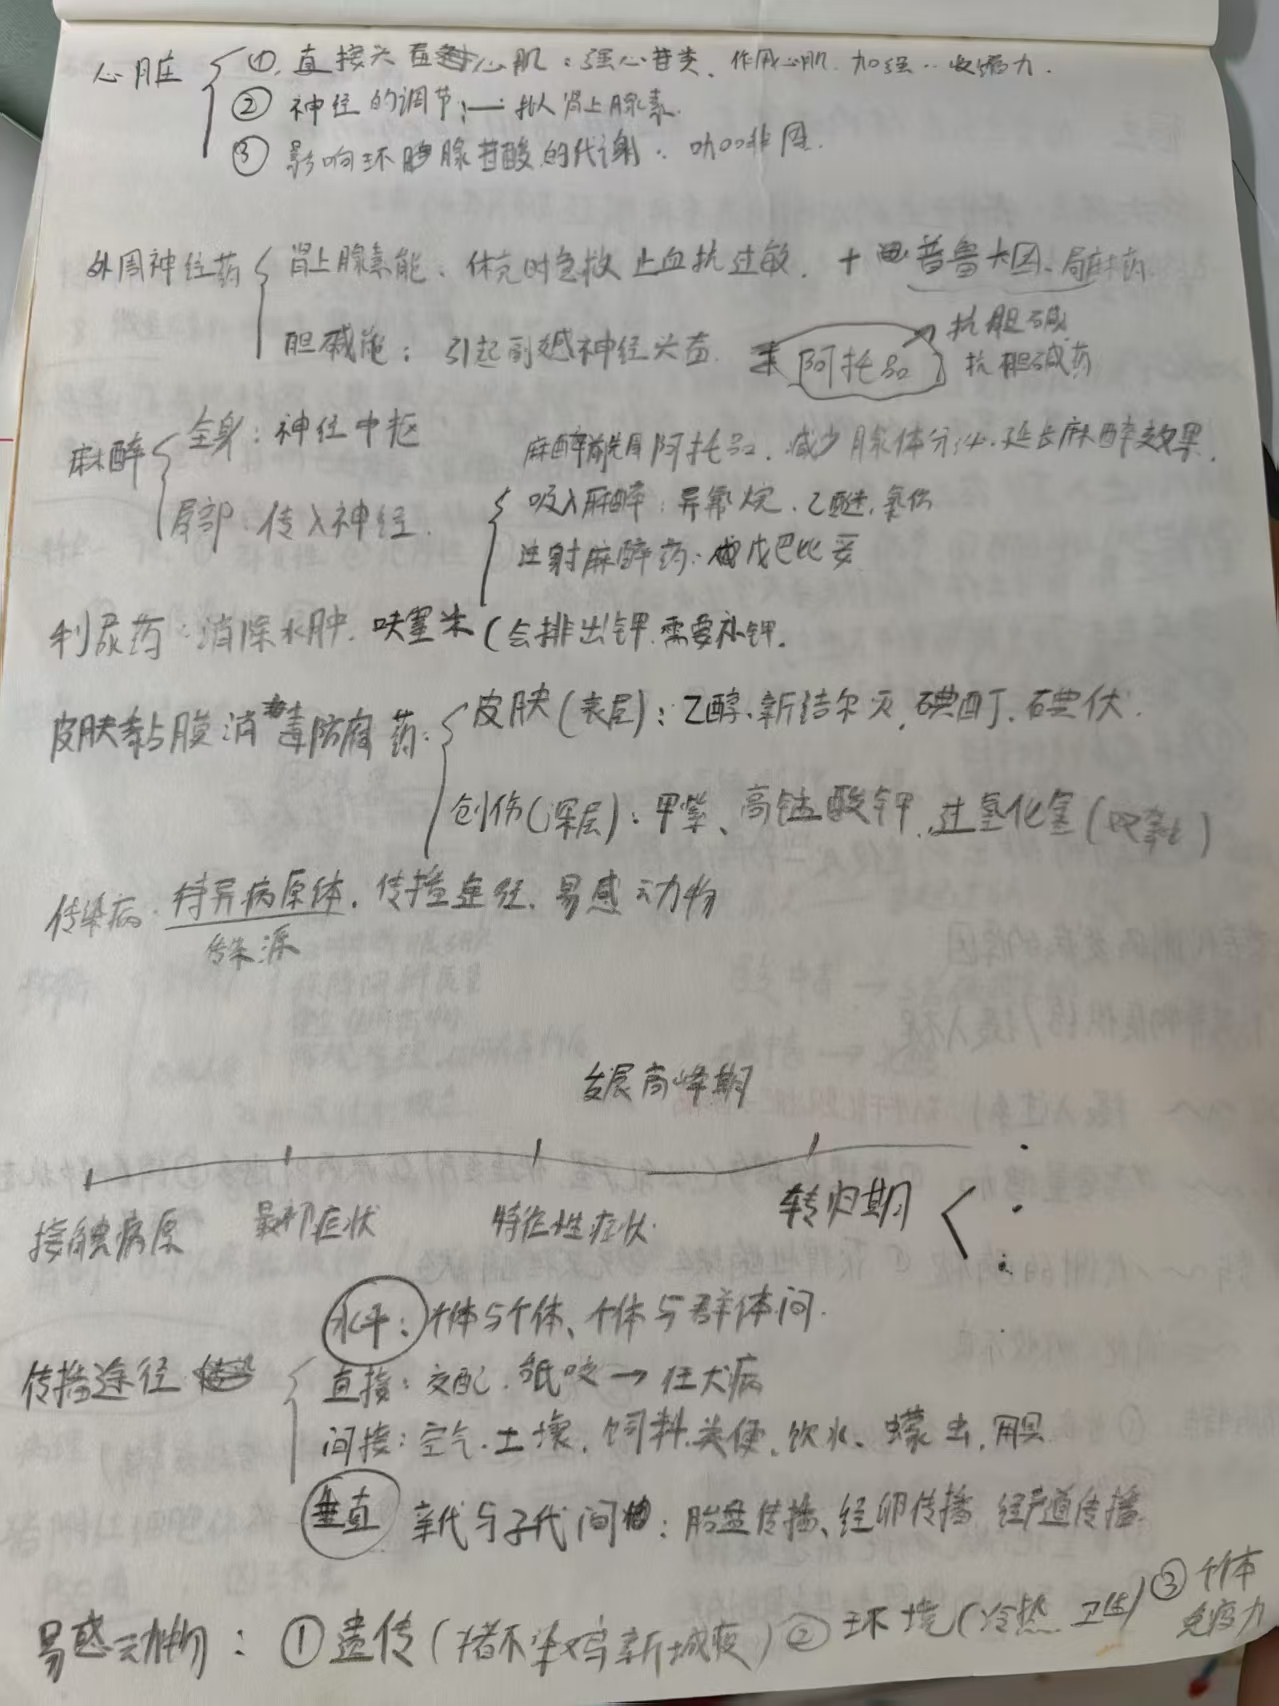 心脏 ①. 直接兴奋心肌：强心苷类、作用心肌. 加强..收缩力.
② 神经的调节：— 拟肾上腺素.
③ 影响环腺苷酸的代谢. 咖啡因.
外周神经药 肾上腺素能、休克时急救 止血抗过敏. + 普鲁卡因、局麻药
胆碱能：引起副交感神经兴奋. 阿托品 → 抗胆碱
抗胆碱药
麻醉 全身：神经中枢 麻醉前先用阿托品、减少腺体分泌、延长麻醉效果.
局部：传入神经. 吸入麻醉：异氟烷、乙醚、氯仿
注射麻醉药：戊巴比妥
利尿药：消除水肿. 呋塞米（会排出钾.需要补钾.
皮肤黏膜消毒防腐药： 皮肤（表层）：乙醇、新洁尔灭，碘酊、碘伏.
创伤（深层）：甲紫、高锰酸钾、过氧化氢（双氧水）
传染病：特异病原体、传播途径、易感动物
传染源
发展高峰期
接触病原 最初症状 特征性症状 转归期
水平：个体与个体、个体与群体间.
传播途径 直接：交配、舐咬→狂犬病
间接：空气、土壤、饲料.粪便、饮水、蠓虫，用具
垂直 亲代与子代间：胎盘传播、经卵传播 经产道传播
易感动物：①遗传（猪不染鸡新城疫）②环境（冷热 卫生）③个体
免疫力